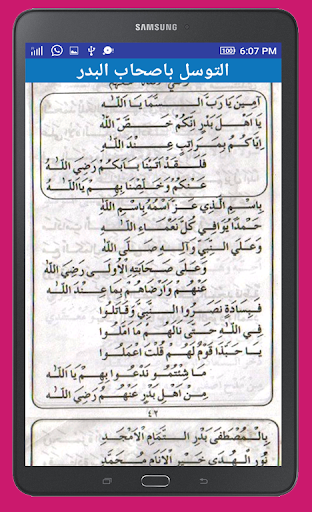 SAMSUNG
100 6:07 PM
التوسل باصحاب البدر
آمِينَ يَا رَبَّ السَّمَا يَا اَللّٰه
يَا اَهْلَ بَدْرٍ اِنَّكُمْ خَصَّ اللّٰهُ
اِيَّاكُمْ بِمَرَاتِبٍ عِنْدَ اللّٰهِ
فَلَقَدْ اَتَيْنَا بَابَكُمْ رَضِيَ اللّٰهُ
عَنْكُمْ وَخَلِّصْنَا بِهِمْ يَا اَللّٰهُ
بِاسْمِ الَّذِي عَزَّ اسْمُهُ بِاسْمِ اللّٰهِ
حَمْدًا يُوَافِي كُلَّ نَعْمَاءِ اللّٰهِ
وَعَلَى النَّبِيِّ وَآلِهِ صَلَّى اللّٰهُ
وَعَلَى صَحَابَتِهِ الْاُولَى رَضِيَ اللّٰهُ
عَنْهُمْ وَاَرْضَاهُمْ بِمَا عِنْدَ اللّٰهِ
فَبِسَادَةٍ نَصَرُوا النَّبِيَّ وَقَاتَلُوا
فِي اللّٰهِ حَتَّى نَالَهُمْ مَا اَمَّلُوا
يَا حَبَّذَا قَوْمٌ لَهُمْ قُلْتَ اعْمَلُوا
مَا شِئْتُمُو نَدْعُوا بِهِمْ يَا اَللّٰهُ
مِنْ اَهْلِ بَدْرٍ عَنْهُمُ رَضِيَ اللّٰهُ
٤٢
بِالْمُصْطَفَى بَدْرِ التَّمَامِ الْاَمْجَدِ
نُورِ الْهُدَى خَيْرِ الْاَنَامِ مُحَمَّدِ